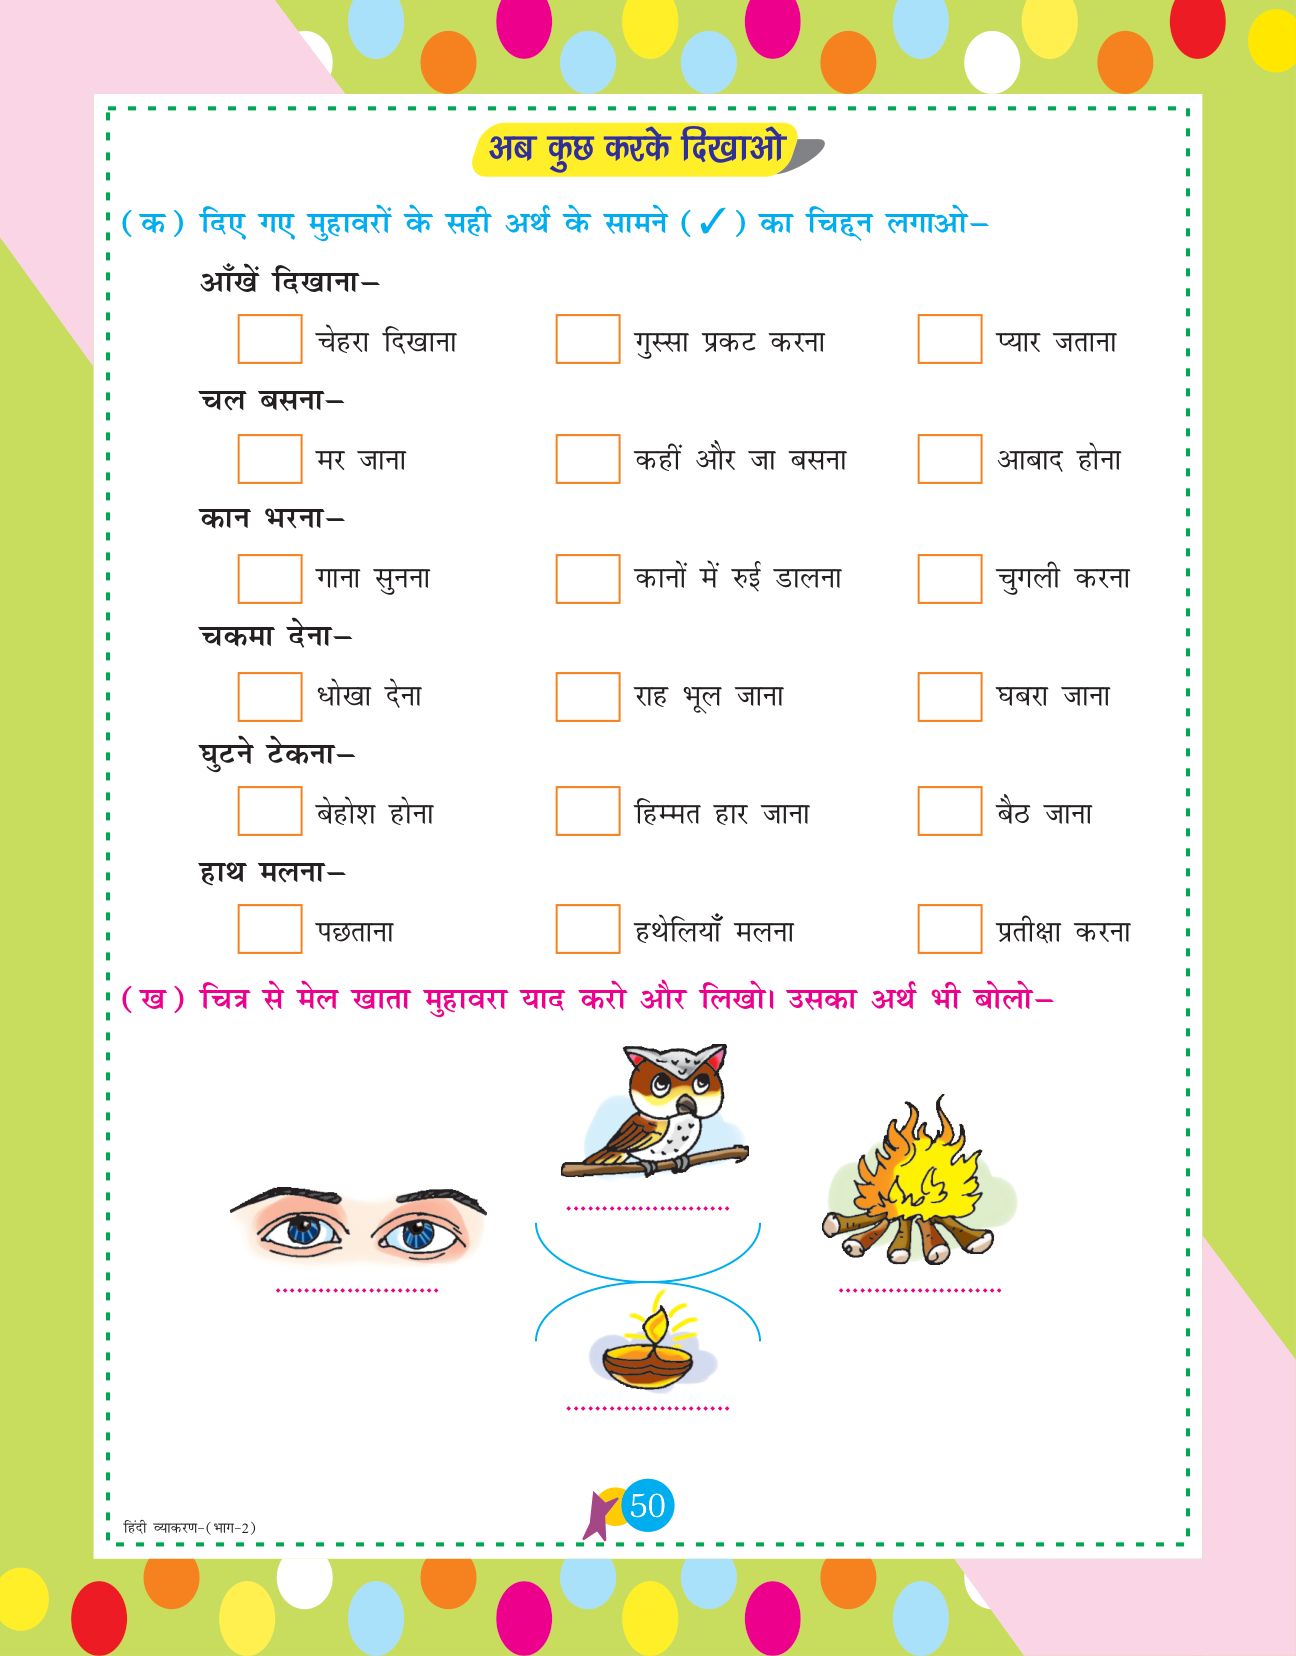 अब कुछ करके दिखाओ
(क) दिए गए मुहावरों के सही अर्थ के सामने (✓) का चिह्न लगाओ–
आँखें दिखाना–
चेहरा दिखाना गुस्सा प्रकट करना प्यार जताना
चल बसना–
मर जाना कहीं और जा बसना आबाद होना
कान भरना–
गाना सुनना कानों में रुई डालना चुगली करना
चकमा देना–
धोखा देना राह भूल जाना घबरा जाना
घुटने टेकना–
बेहोश होना हिम्मत हार जाना बैठ जाना
हाथ मलना–
पछताना हथेलियाँ मलना प्रतीक्षा करना
(ख) चित्र से मेल खाता मुहावरा याद करो और लिखो। उसका अर्थ भी बोलो–
.......................
.......................
.......................
.......................
50
हिंदी व्याकरण-(भाग-2)